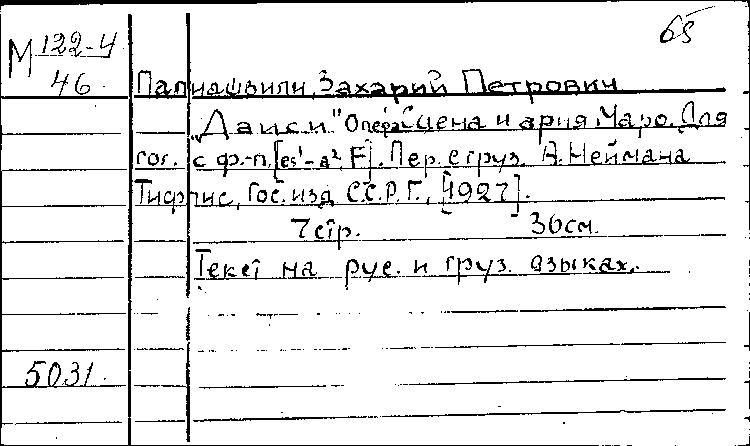 65
М 122-4
46
Палиашвили, Захарий Петрович
„Даиси" Опера Сцена и ария Маро. Для
гол. с ф-п. [es¹-a², F]. Пер. с груз. А. Неймана
Тифлис, Гос. изд. С.С.Р.Г., [1927].
7 стр. 36 см.
Текст на рус. и груз. языках.
5031.